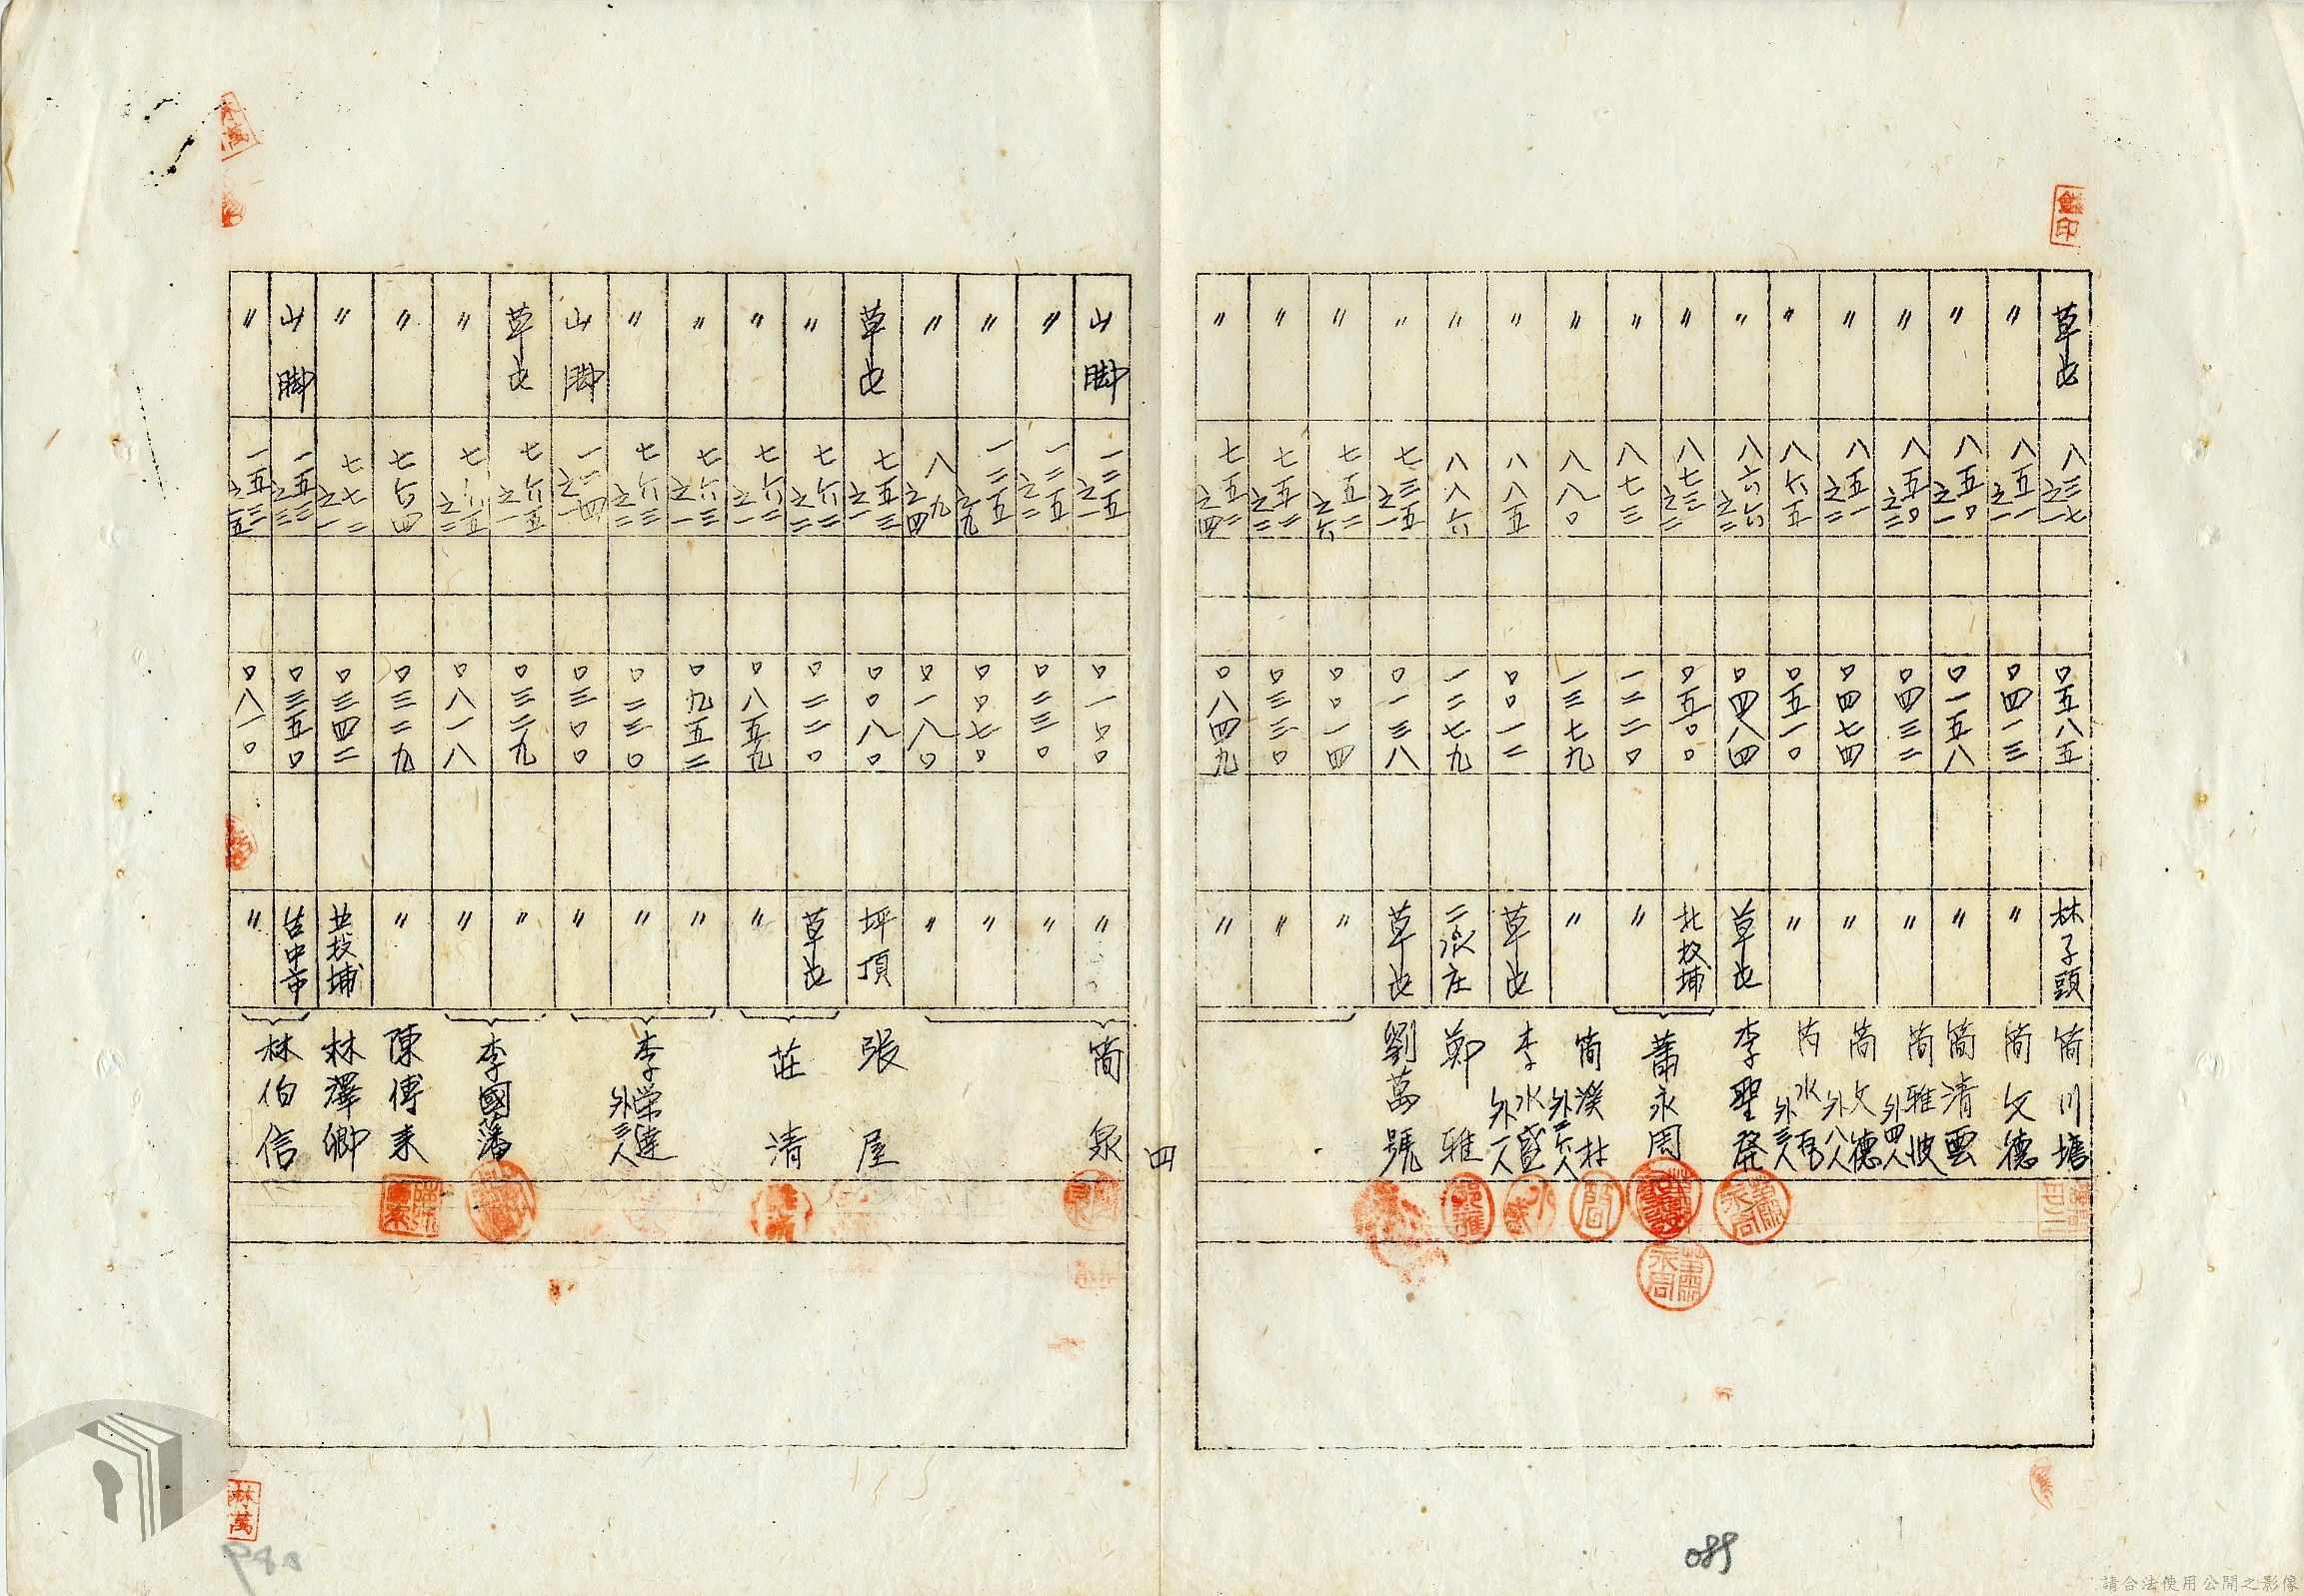 草屯 八三七之一 〇五八五 林子頭 簡川塘
〃 八五一之一 〇四一三 〃 簡文德
〃 八五〇之一 〇一五八 〃 簡清雲
〃 八五〇之三 〇四三二 〃 簡雅 外四人
〃 八五一之二 〇四七四 〃 簡文德 外八人
〃 八六五 〇五一〇 〃 水 外三人
〃 八六六之三 〇四八四 草屯 李聖發
〃 八七三之三 〇五〇〇 北投埔 蕭永周
〃 八七三 一二二〇 〃
〃 八八〇 一三七九 〃 簡溪杜
〃 八八五 〇〇一二 草屯 李水盛 外一人
〃 八八六 一二七九 二張庄 鄭雅
〃 七三五之一 〇一三八 草屯 劉萬號
〃 七五二之六 〇〇一四 〃
〃 七五二之三 〇三三〇 〃
〃 七五二之四 〇八四九 〃
四
山脚 一三五之一 〇一〇〇 〃 簡泉
〃 一三五之二 〇三三〇 〃
〃 一三五之九 〇〇七〇 〃
〃 八九之四 〇一八〇 〃
草屯 七五三之一 〇〇八〇 坪頂 張屋
〃 七六二之二 〇二二〇 草屯 莊清
〃 七六二之一 〇八五九 〃
〃 七六三之一 〇九五二 〃 李榮達 外三人
〃 七六三之二 〇二三〇 〃
山脚 一二四之一 〇三〇〇 〃
草屯 七六五之一 〇三二九 〃 李國藩
〃 七六五之二 〇八一八 〃
〃 七六四 〇三二九 〃 陳傳來
〃 七七二之一 〇三四二 北投埔 林澤卿
山脚 一五三之三 〇三五〇 台中市 林伯信
〃 一五三之五 〇八一〇 〃
林萬
089
請合法使用公開之影像